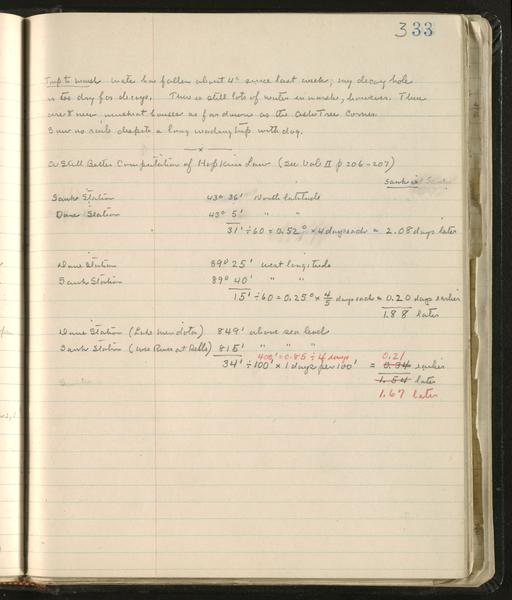 333
Trip to marsh Water has fallen about 4" since last week; my decoy hole
is too dry for decoys. There is still lots of water in marshes, however. There
are new muskrat houses as far down as the Ashe Tree Corner.
Saw no rails despite a long wading trip with dog.
x
A Still Better Computation of Hopkins Law (See Vol II p 206-207)
Sauk is
Sauk Station 43° 36' North latitude
Dane Station 43° 5' " "
31' ÷ 60 = 0.52° × 4 days each = 2.08 days later
Dane Station 89° 25' west longitude
Sauk Station 89° 40' " "
15' ÷ 60 = 0.25° × 4/5 days each = 0.20 days earlier
1.88 later
Dane Station (Lake Mendota) 849' above sea level
Sauk Station (Wisc River at Dells) 815' " " "
400' = 0.85 ÷ 4 days 0.21
34' ÷ 100' × 1 days per 100' = 0.34 earlier
1.54 later
1.67 later